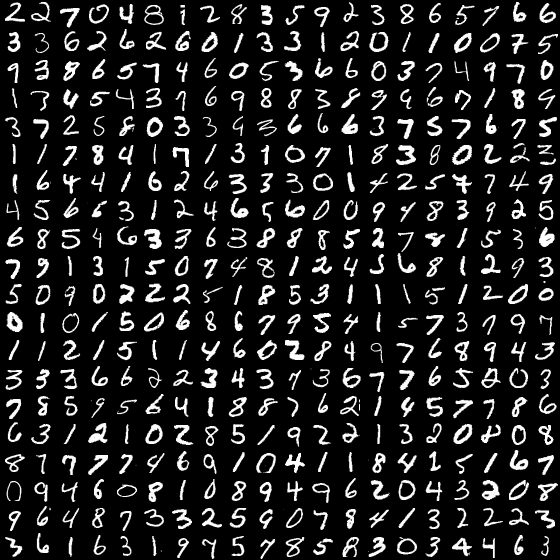 2 2 7 0 4 8 1 2 8 3 5 9 2 3 8 6 5 7 6 6
3 3 6 2 6 2 6 0 1 3 3 1 2 0 1 1 0 0 7 5
9 3 8 6 5 7 4 6 0 5 3 6 6 0 3 7 4 9 7 0
1 3 4 5 4 3 7 6 9 8 8 3 8 9 9 6 7 1 8 9
3 7 2 5 8 0 3 3 9 3 6 6 6 3 7 5 7 6 7 5
1 1 7 8 4 1 7 1 3 1 0 7 1 8 3 8 0 2 2 3
1 6 4 4 1 6 2 6 3 3 3 0 1 4 2 5 7 7 4 9
4 5 6 6 3 1 2 4 6 5 6 0 0 9 4 8 3 9 2 5
6 8 5 4 6 3 3 6 3 8 8 8 5 2 7 8 1 5 3 6
7 9 1 3 1 5 0 7 4 8 1 2 4 5 6 8 1 2 9 3
5 0 9 0 2 2 2 5 1 8 5 3 1 1 1 5 1 2 0 0
0 1 0 1 5 0 6 8 6 7 9 5 4 1 5 7 3 7 9 7
1 1 2 1 5 1 1 4 6 0 2 8 4 9 7 6 8 9 4 3
3 3 3 6 6 2 2 3 4 3 7 3 6 7 7 6 5 2 0 3
7 8 5 9 5 6 4 1 8 8 7 6 2 1 4 5 7 7 8 6
6 3 1 2 1 0 2 8 5 1 9 2 2 1 3 2 0 8 0 8
8 7 7 7 7 4 6 9 1 0 4 1 1 8 4 1 5 1 6 7
0 9 4 6 0 8 1 0 8 9 4 9 6 2 0 4 3 2 0 8
9 6 4 8 7 3 3 2 5 9 0 7 8 4 1 3 2 2 2 3
3 6 1 6 3 1 9 7 5 7 8 5 8 3 0 3 4 4 6 3